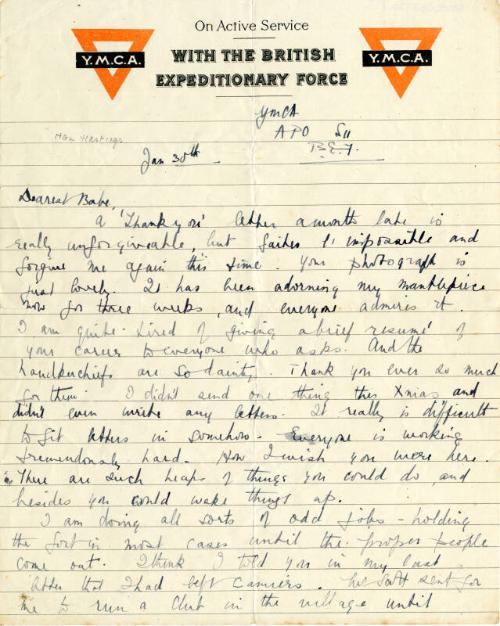 On Active Service
Y.M.C.A. WITH THE BRITISH Y.M.C.A.
EXPEDITIONARY FORCE
YMCA
APO S11
B.E.F.
Jan 30th
Dearest Babe,
A 'Thank you' letter a month late is
really unforgiveable, but and
forgive me again this time. Your photograph is
just lovely. It has been adorning my mantlepiece
now for three weeks, and everyone admires it.
I am quite tired of giving a brief resumé of
your career to everyone who asks. And the
handkerchiefs are so dainty. Thank you ever so much
for them. I didn't send one thing this Xmas and
didn't even write any letters. It really is difficult
to fit letters in somehow. Everyone is working
tremendously hard. How I wish you were here.
There are such heaps of things you could do and
besides you could wake things up.
I am doing all sorts of odd jobs - holding
the fort in most cases until the proper people
come out. I think I told you in my last
letter that I had left . sent for
me to run a Club in the village until